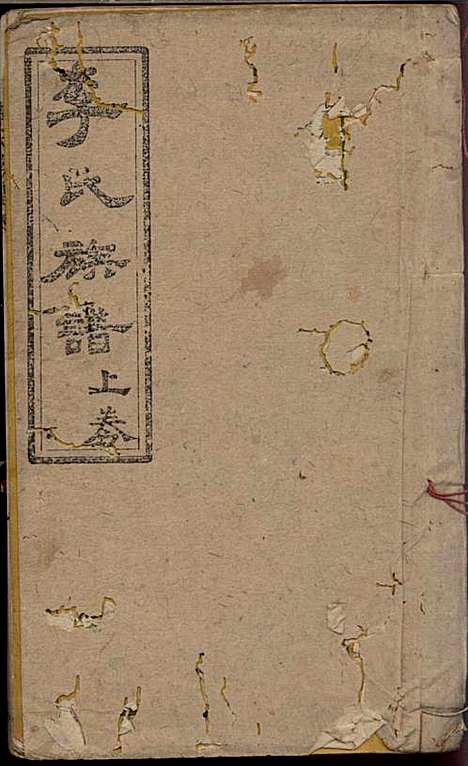 李氏族譜上卷